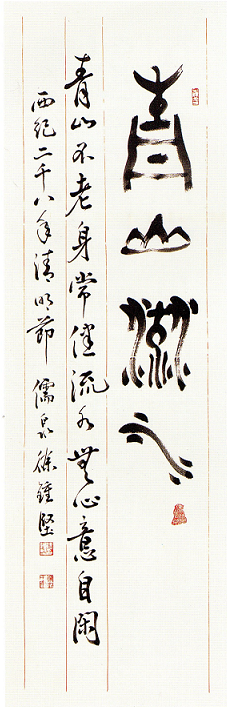 青山流水
青山不老身常健流水無心意自閑
西紀二千八年清明節 儒泉徐鍾堅